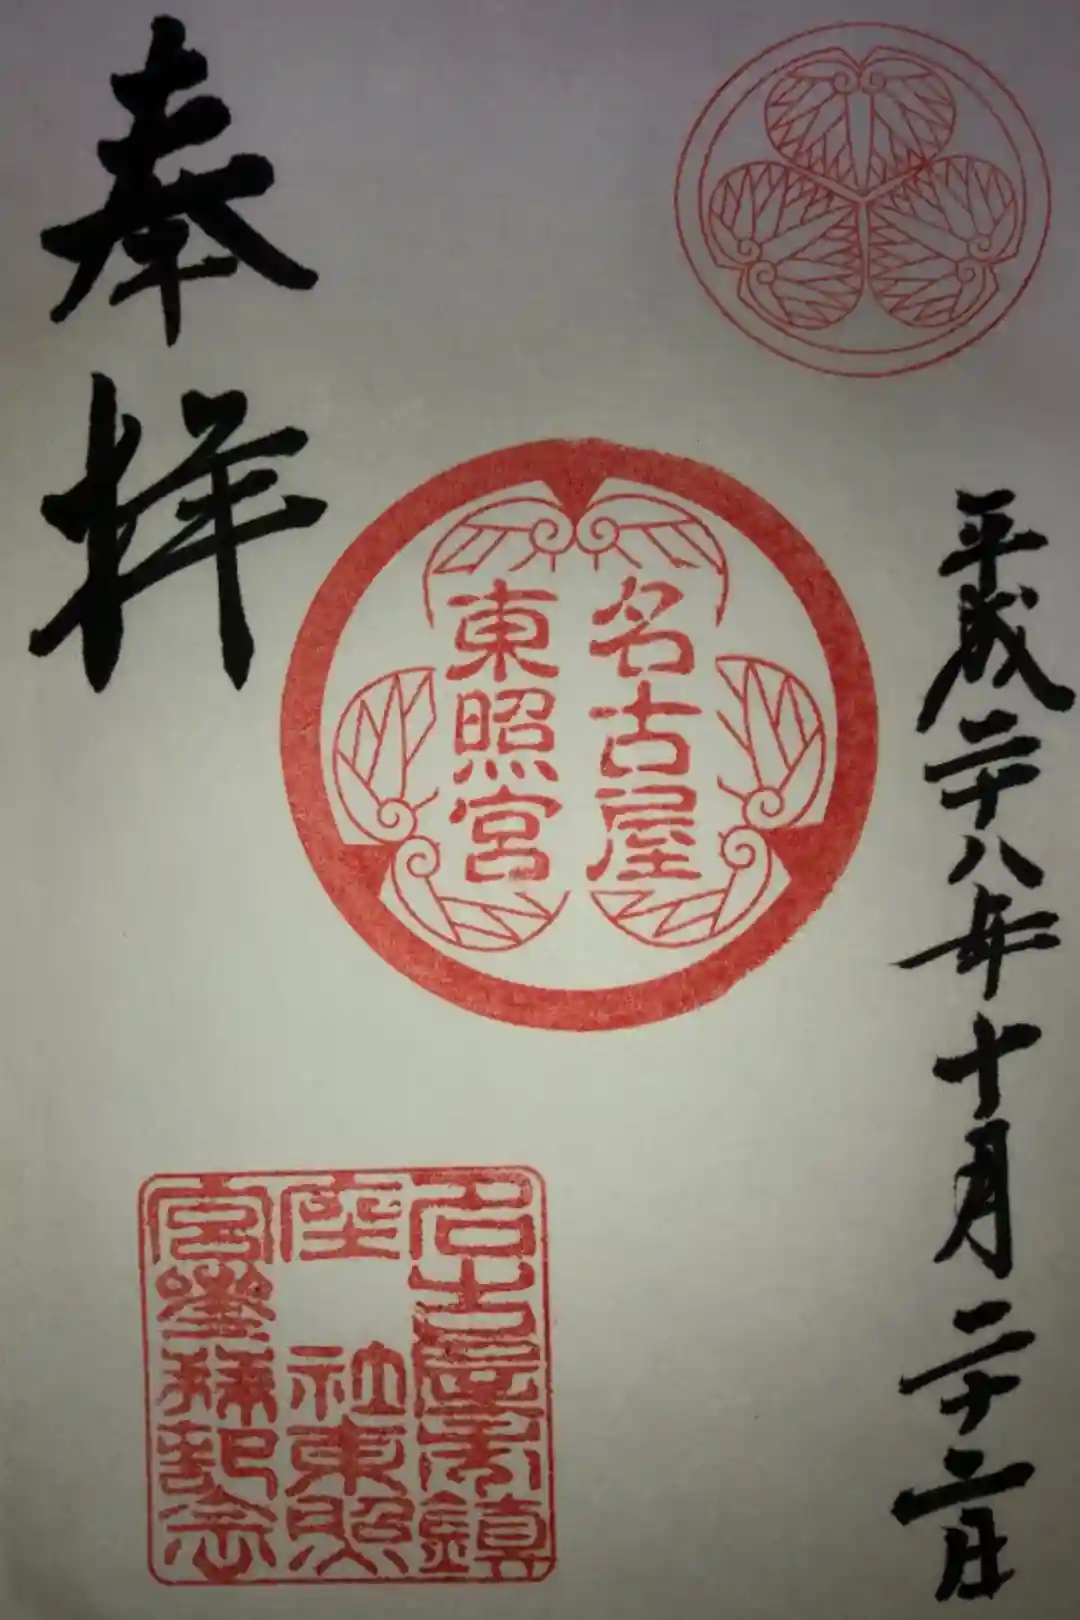 平成二十八年十月二十二日
名古屋
東照宮
奉拝
名古屋市鎮
座 社東照
宮參拜記念